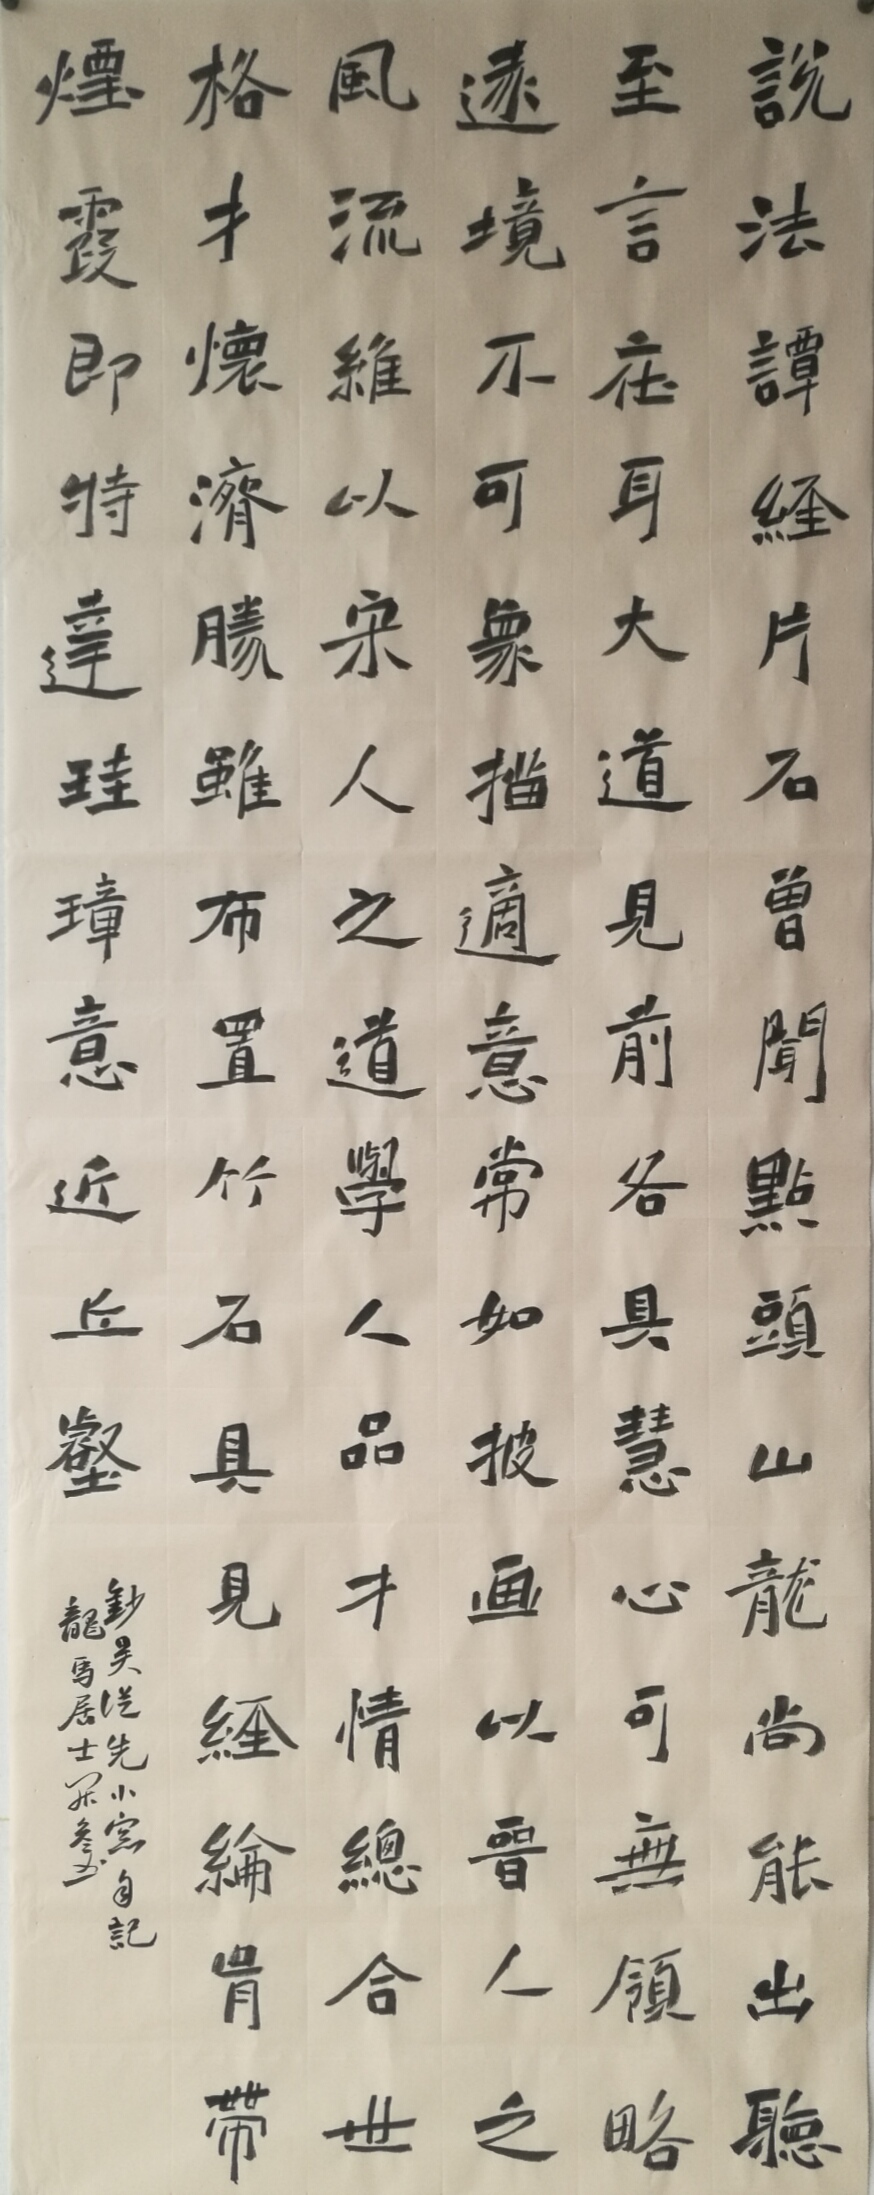 說法譚經片石曾聞點頭山龍尚能出聽
至言在耳大道見前各具慧心可無領略
遠境不可象描適意常如披画以晉人之
風流維以宋人之道學人品才情總合世
格才懷濟勝雖布置竹石具見經綸胷帶
煙霞即特達珪璋意近丘壑
鈔吴從先小窓自記
龍馬居士